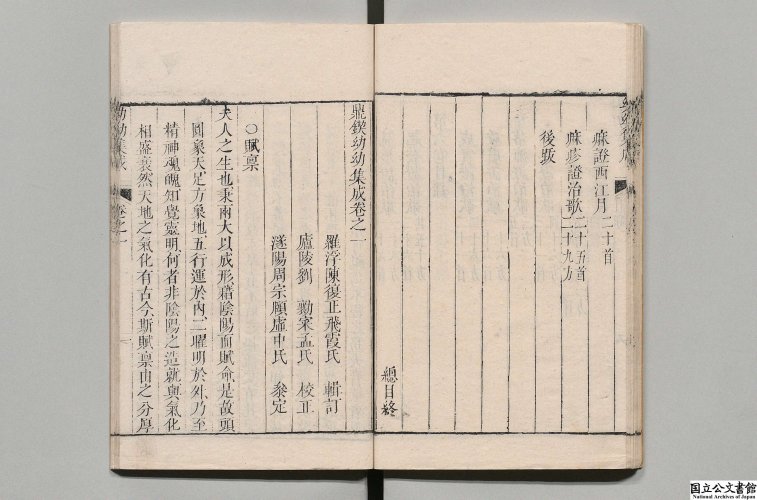 麻證西江月二十首
麻疹證治歌二十五首二十九方
後跋
總目終
鼎鍥幼幼集成卷之一
羅浮陳復正飛霞氏 輯訂
廬陵劉 勷宷孟氏 校正
遂陽周宗頤虛中氏 叅定
〇賦稟
夫人之生也秉兩大以成形藉陰陽而賦命是故頭
圓象天足方象地五行運於內二曜明於外乃至
精神魂魄知覺靈明何者非陰陽之造就與氣化
相盛衰然天地之氣化有古今斯賦稟由之分厚
幼幼集成 卷之一
国立公文書館
National Archives of Japan